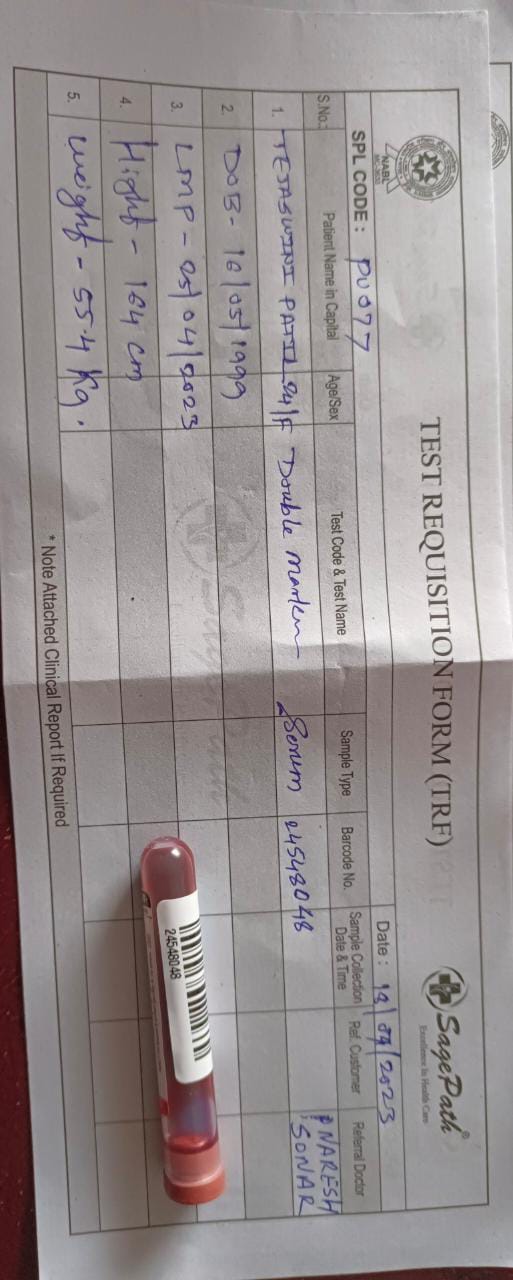 TEST REQUISITION FORM (TRF)
SagePath®
Excellence In Health Care
NABL
SPL CODE : PU077
Date : 13/07/2023
S.No.: Patient Name in Capital Age/Sex Test Code & Test Name Sample Type Barcode No. Sample Collection Date & Time Ref. Customer Referral Doctor
1. TEJASWINI PATIL 24/F Double Marker Serum 24548048 NARESH SONAR
2. DOB - 16/05/1999
3. LMP - 25/04/2023
4. Hight - 164 cm
5. weight - 55.4 Kg.
* Note Attached Clinical Report If Required
24548048